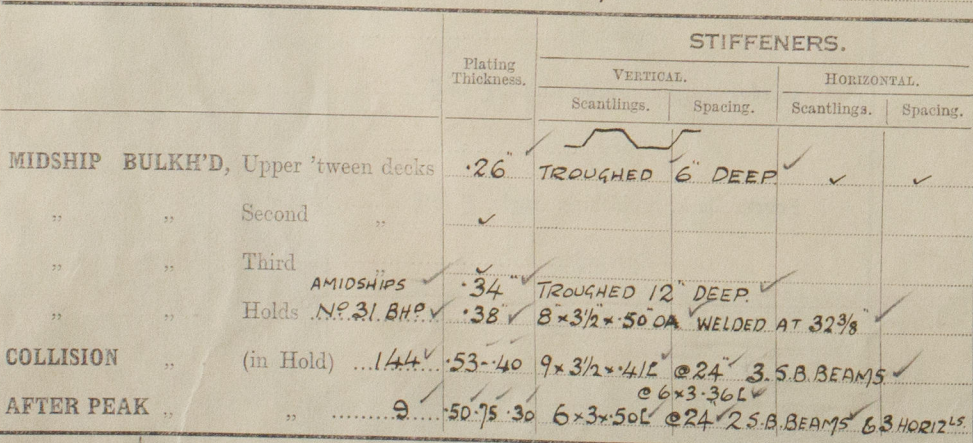 STIFFENERS.
Plating Thickness. VERTICAL. HORIZONTAL.
Scantlings. Spacing. Scantlings. Spacing.
MIDSHIP BULKH'D, Upper 'tween decks ·26" TROUGHED 6" DEEP ✓ ✓
„ „ Second „ ✓
„ „ Third „ ✓
AMIDSHIPS ·34" TROUGHED 12" DEEP.
„ „ Holds Nº 31 BHD ·38" 8"×3½"×·50"OA WELDED AT 32⅜"
COLLISION „ (in Hold) 144 ·53-·40 9×3½×·41[ @24" 3. S.B. BEAMS
@ 6×3·36[
AFTER PEAK „ „ 9 ·50·75·30 6×3×·50[ @24" 2 S.B. BEAMS & 3 HORIZLS.